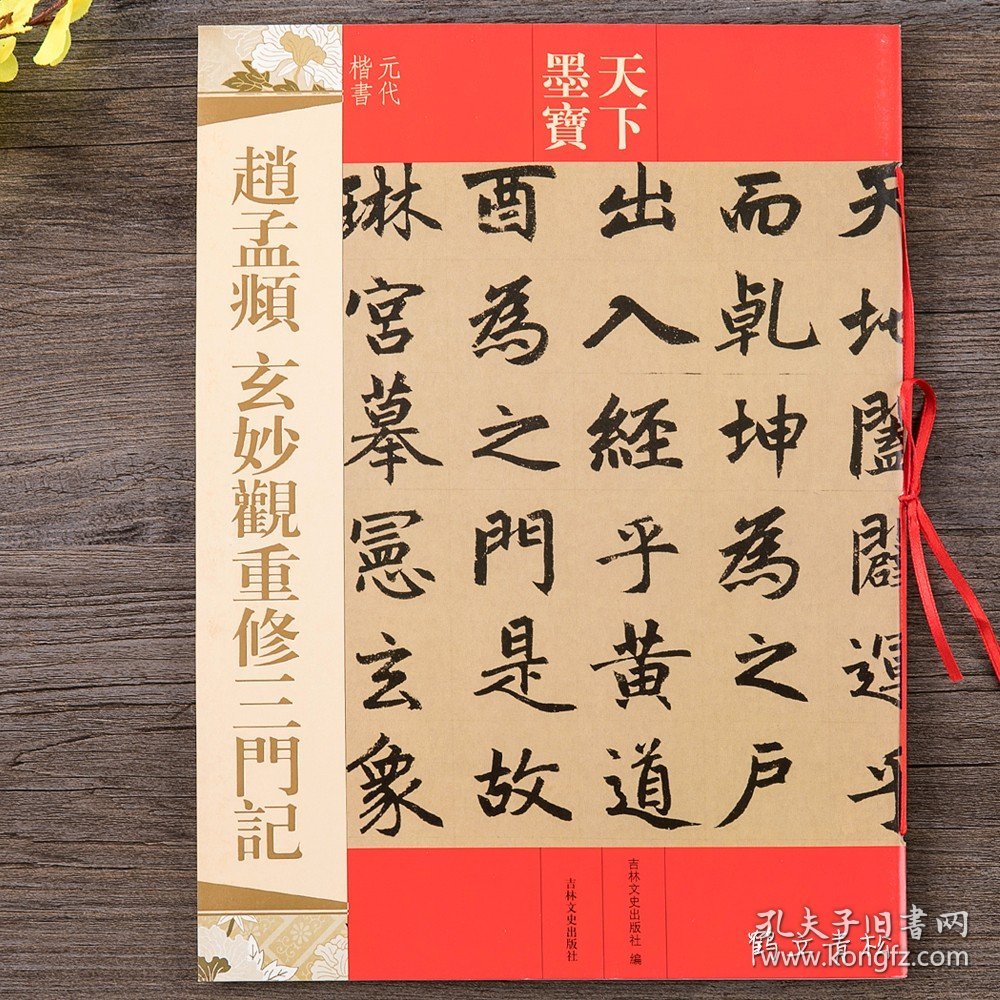 天下
墨寶
元代
楷書
趙孟頫 玄妙觀重修三門記
天地闔闢運乎
而乹坤為之戶
出入經乎黃道
酉為之門是故
琳宮摹憲玄象
吉林文史出版社 編
吉林文史出版社
孔夫子旧书网
www.kongfz.com